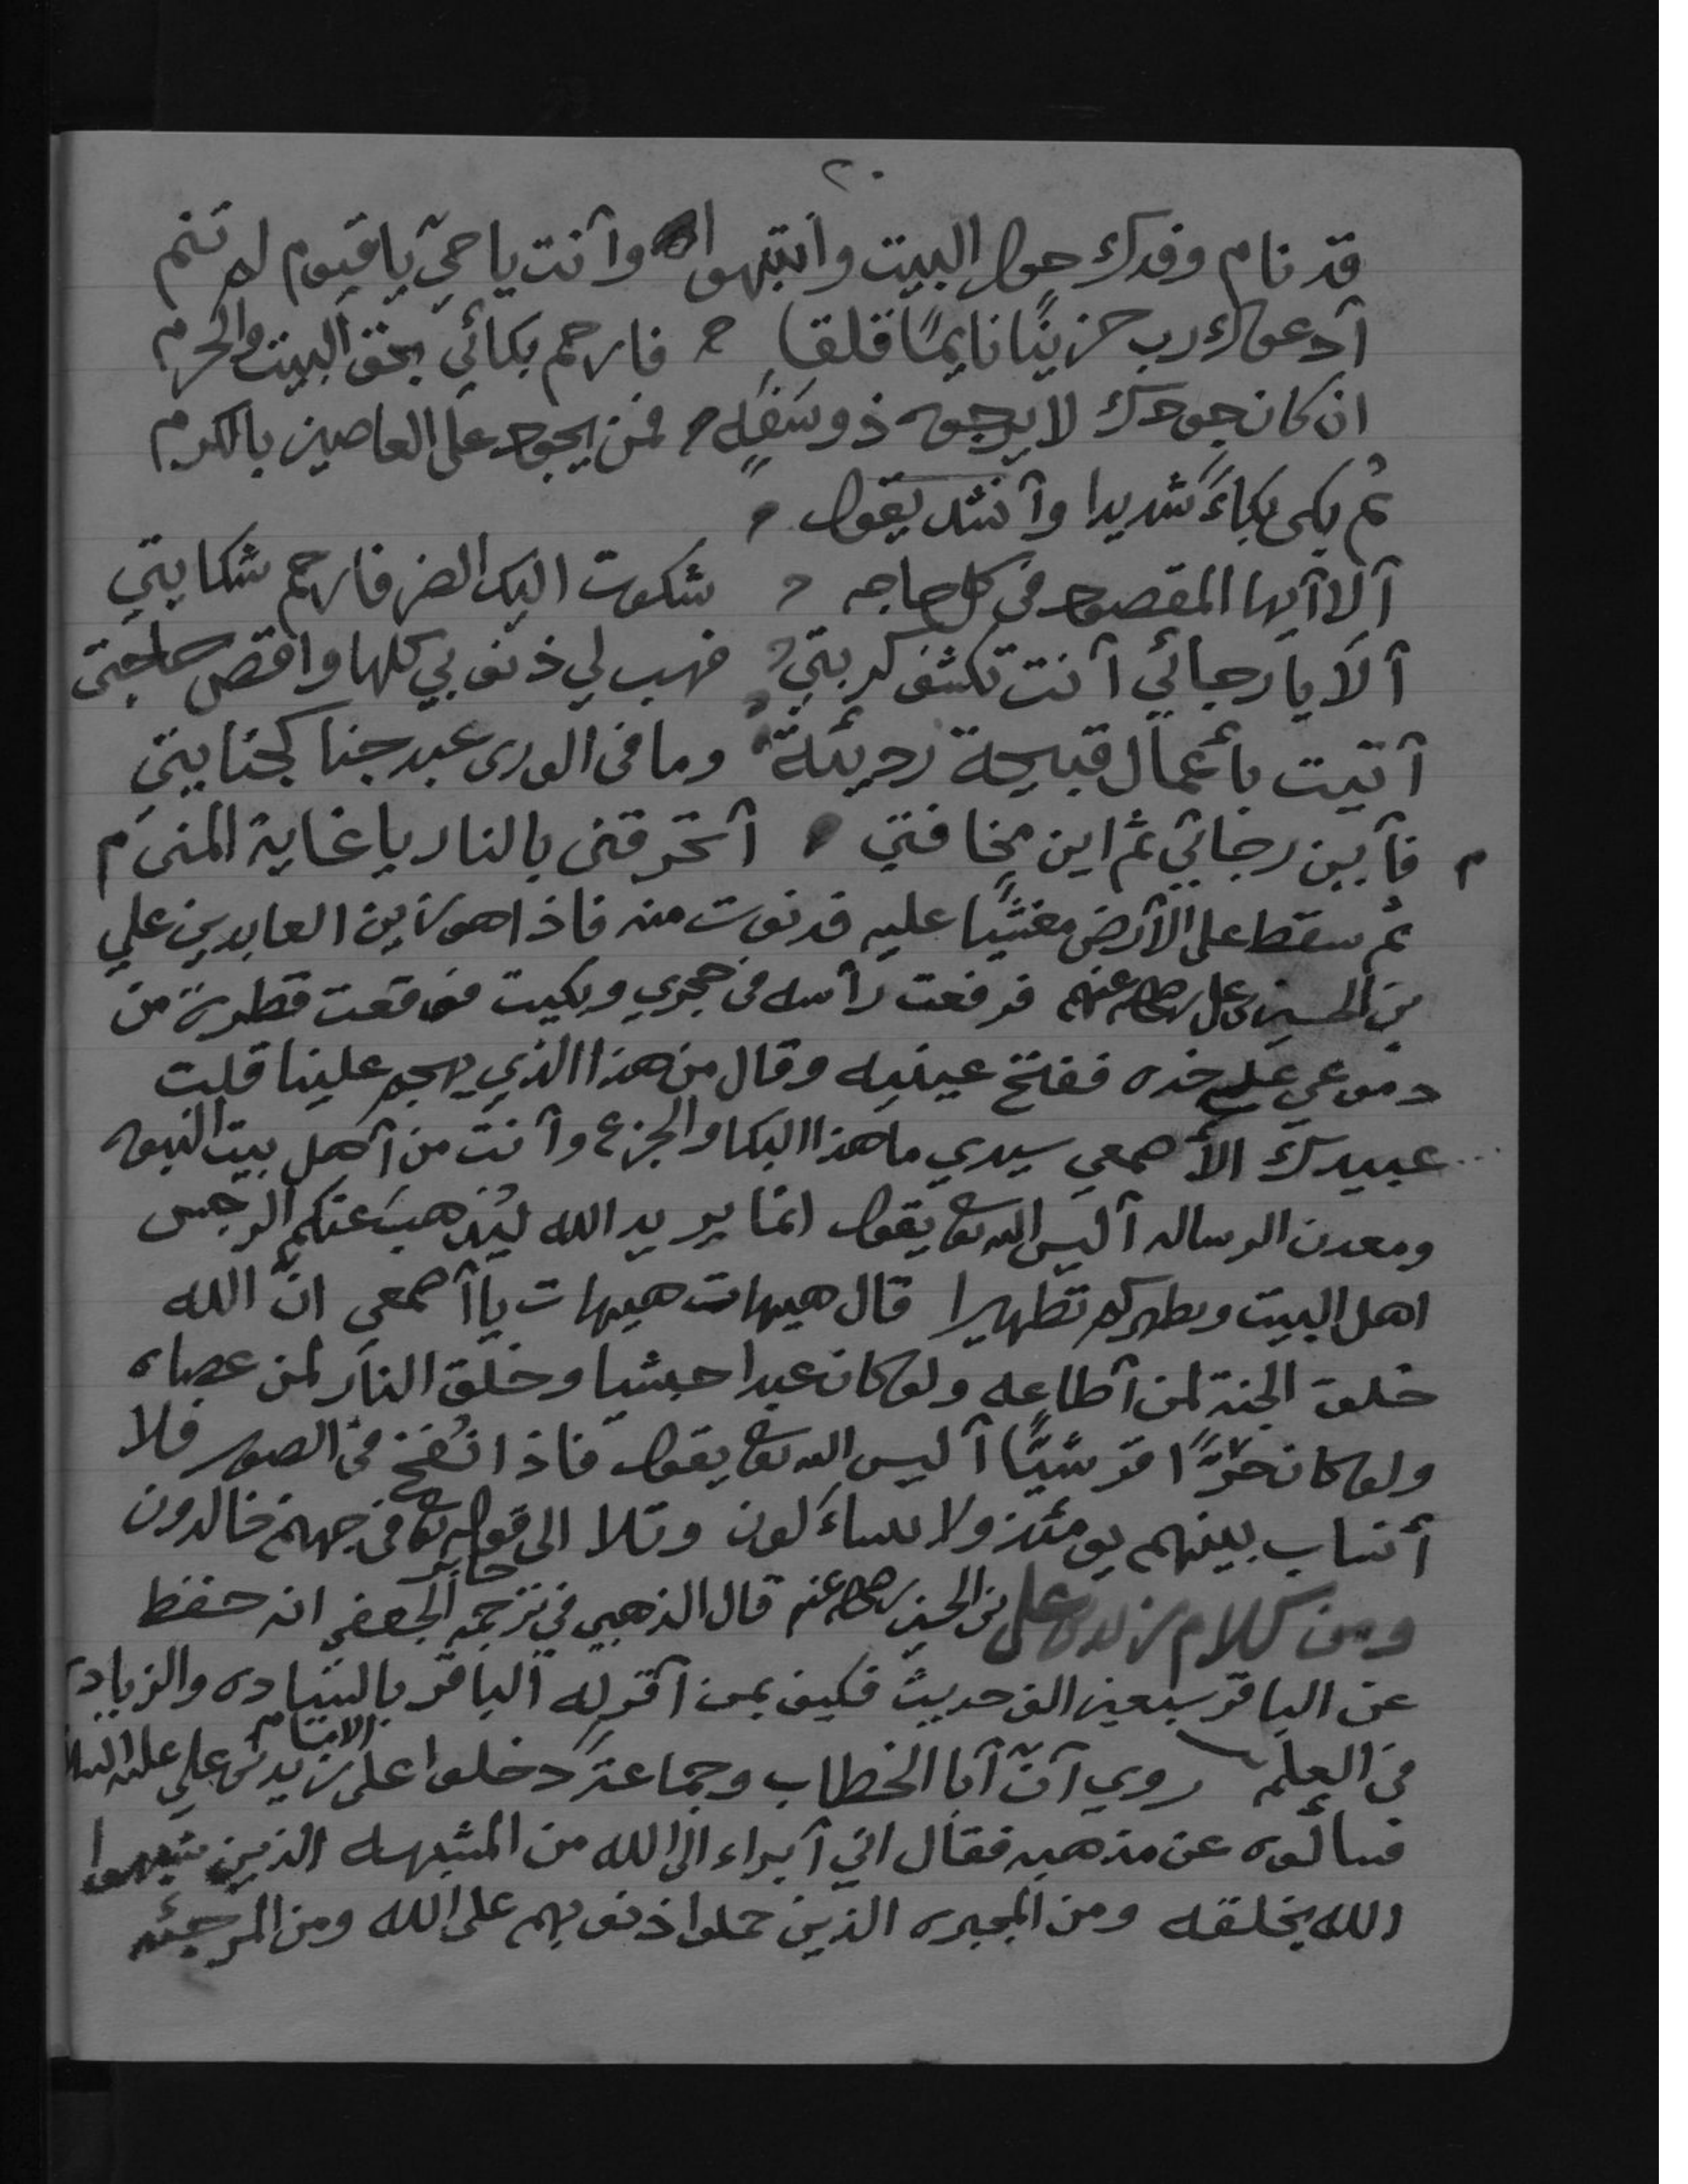 ٢٠
قد نام وفدك حول البيت وانتبهوا وأنت يا حيّ يا قيوم لم تنم
أدعوك رب حزينًا نايمًا قلقا فارحم بكائي بحق البيت والحرم
ان كان جودك لا يرجوه ذو سَفَهٍ فمن يجود على العاصين بالكرم
ثم بكى بكاءً شديدا وأنشد يقول
ألا أيها المقصود في كل حاجه شكوت اليك الضر فارحم شكايتي
ألا يا رجائي أنت تكشف كربتي فهب لي ذنوبي كلها واقض حاجتي
أتيت بأعمال قبيحة رديئة وما في الورى عبد جنا كجنايتي
م فأين رجائي ثم اين مخافتي أتحرقني بالنار يا غاية المنى م
ثم سقط على الأرض مغشيًا عليه فدنوت منه فاذا هو زين العابدين علي
بن الحسين بن علي رضي الله عنهم فرفعت رأسه في حجري وبكيت فوقعت قطرة من
دموعي على خده ففتح عينيه وقال من هذا الذي يهجم علينا قلت
عبيدك الأصمعي سيدي ما هذا البكا والجزع وأنت من أهل بيت النبوه
ومعدن الرساله أليس الله تعالى يقول انما يريد الله ليُذهبَ عنكم الرجس
اهل البيت ويطهركم تطهيرا قال هيهات هيهات يا أصمعي انّ الله
خلق الجنة لمن أطاعه ولو كان عبدا حبشيا وخلق النار لمن عصاه
ولو كان حرًّا قرشيًّا أليس الله تعالى يقول فاذا نُفخ في الصور فلا
أنساب بينهم يومئذ ولا يتساءلون وتلا الى قوله تعالى في جهنم خالدون
ومن كلام زيد بن علي بن الحسين رضي الله عنهم قال الذهبي في ترجمة جابر الجعفي انه حفظ
عن الباقر سبعين الف حديث فكيف بمن أقر له الباقر بالسيادة والزيادة
في العلم روي أنّ أبا الخطاب وجماعة دخلوا على الامام زيد بن علي عليه السلام
فسألوه عن مذهبه فقال اني أبراء الى الله من المشبهه الذين شبهوا
الله بخلقه ومن المجبره الذين حملوا ذنوبهم على الله ومن المرجئه